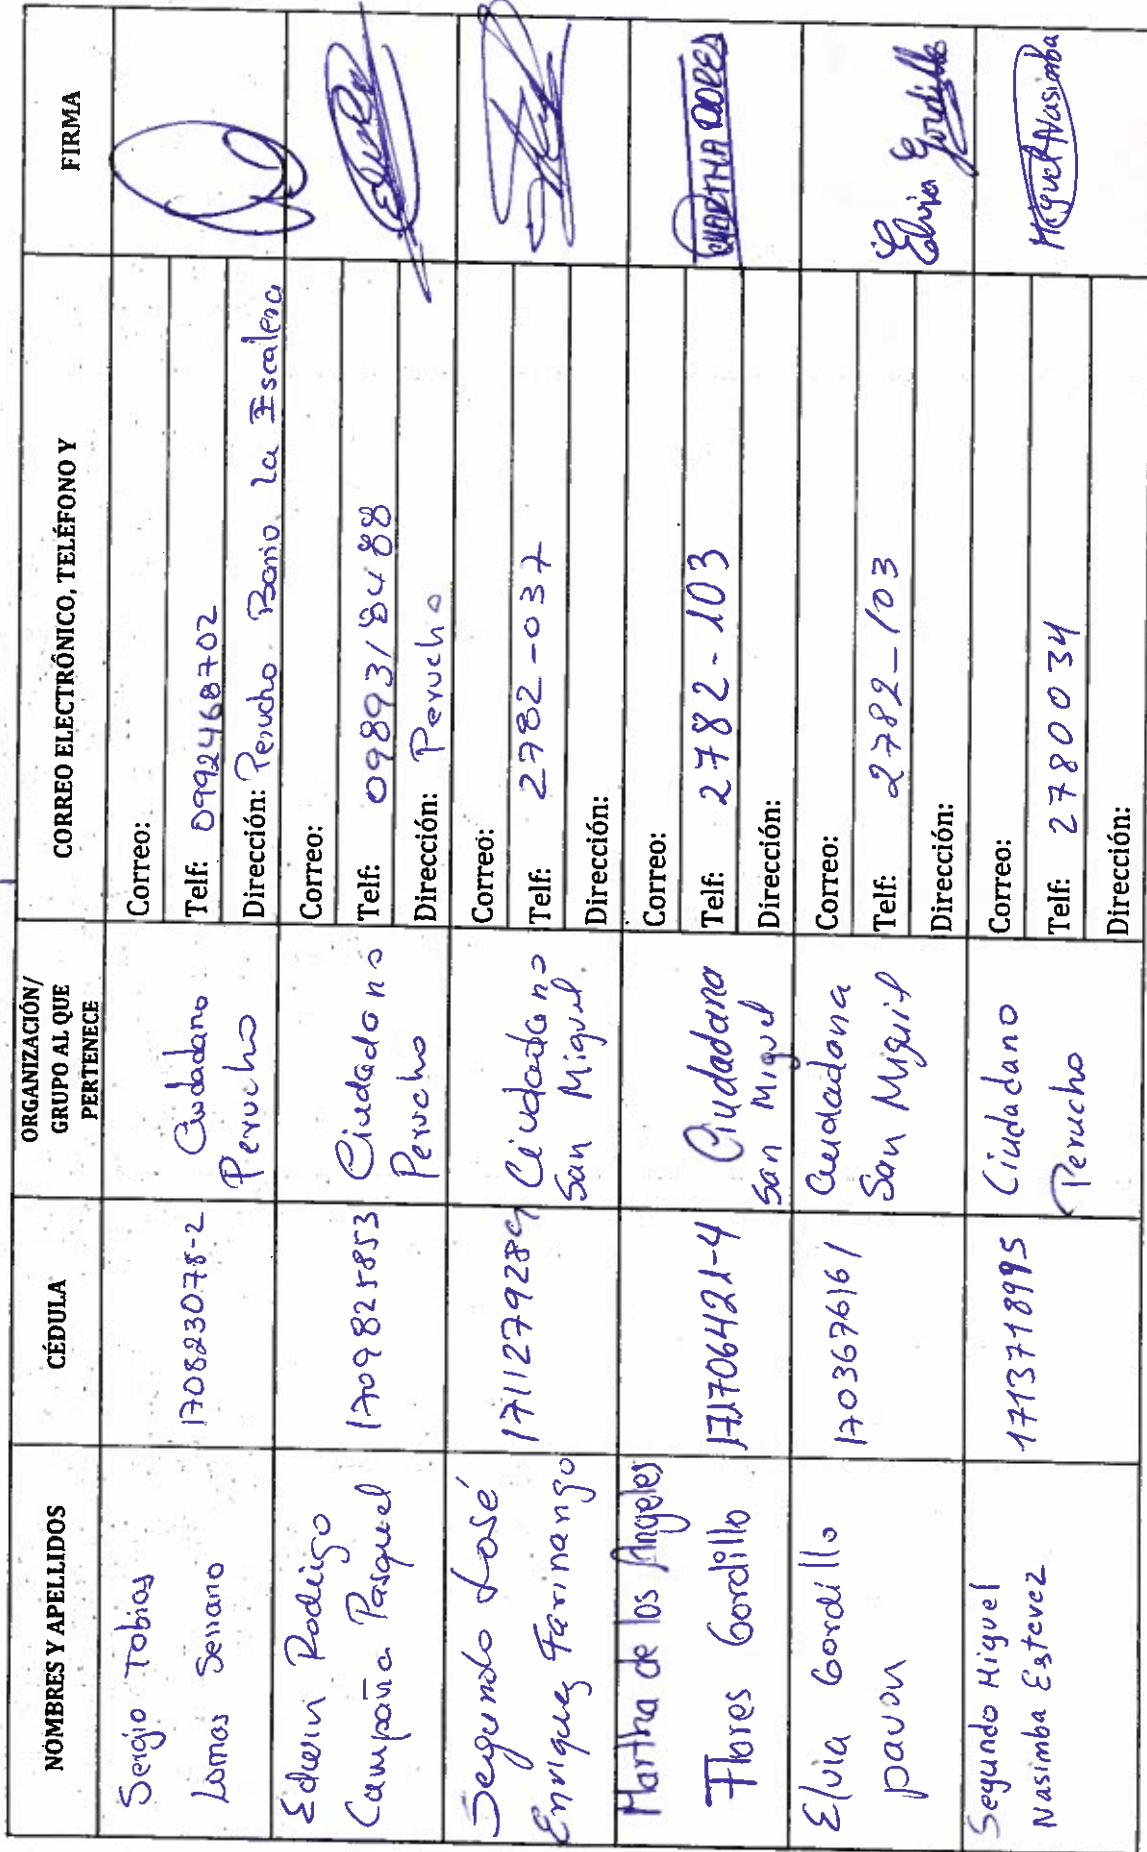 NOMBRES Y APELLIDOS
CÉDULA
ORGANIZACIÓN/
GRUPO AL QUE
PERTENECE
CORREO ELECTRÓNICO, TELÉFONO Y
FIRMA
Sergio Tobias
Lomas Serrano
170823078-2
Ciudadano
Perucho
Correo:
Telf: 0992468702
Dirección: Perucho Barrio La Escalera
Edwin Rodrigo
Campaña Pasquel
1709825853
Ciudadano
Perucho
Correo:
Telf: 0989318488
Dirección: Perucho
Segundo José
Enriquez Farinango
1711279289
Ciudadano
San Miguel
Correo:
Telf: 2782-037
Dirección:
Martha de los Angeles
Flores Gordillo
171706421-4
Ciudadana
San Miguel
Correo:
Telf: 2782-103
Dirección:
MARTHA FLORES
Elvia Gordillo
pavon
1703676161
Ciudadana
San Miguel
Correo:
Telf: 2782-103
Dirección:
Elvia Gordillo
Segundo Miguel
Nasimba Estevez
1713718995
Ciudadano
Perucho
Correo:
Telf: 2780034
Dirección:
Miguel Nasimba